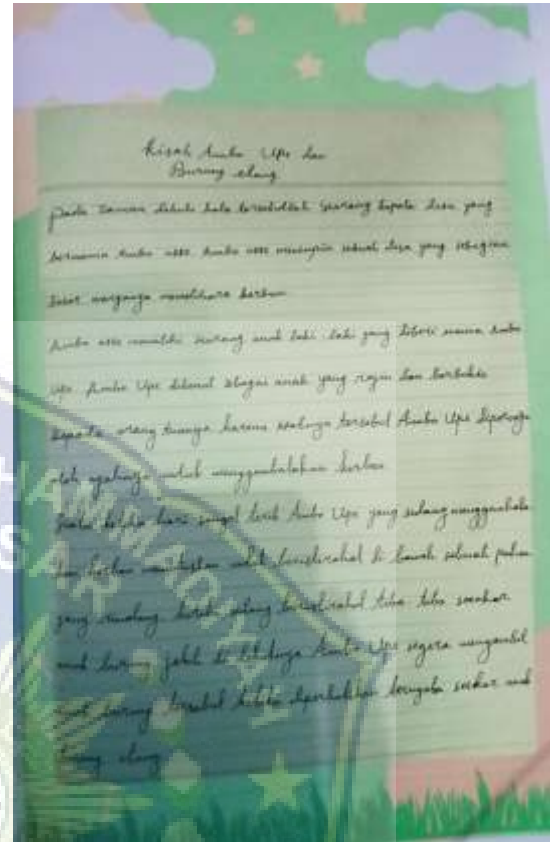 Kisah Ambo Upe dan
Burung elang
pada zaman dahulu kala tersebutlah seorang kepala desa yang
bernama Ambo asse. Ambo asse memimpin sebuah desa yang sebagian
besar warganya memelihara kerbau
Ambo asse memiliki seorang anak laki laki yang diberi nama Ambo
Upe. Ambo Upe dikenal sebagai anak yang rajin dan berbakti
kepada orang tuanya karena tersebut Ambo Upe dipercaya
oleh ayahnya untuk menggembalakan kerbau
Pada hari sangat terik Ambo Upe yang sedang menggembala
kan kerbau untuk beristirahat di bawah sebuah pohon
yang rindang beristirahat tiba tiba seekor
anak burung jatuh di Ambo Upe segera mengambil
burung tersebut diperhatikan seekor anak
burung elang
HAMMADIYAH